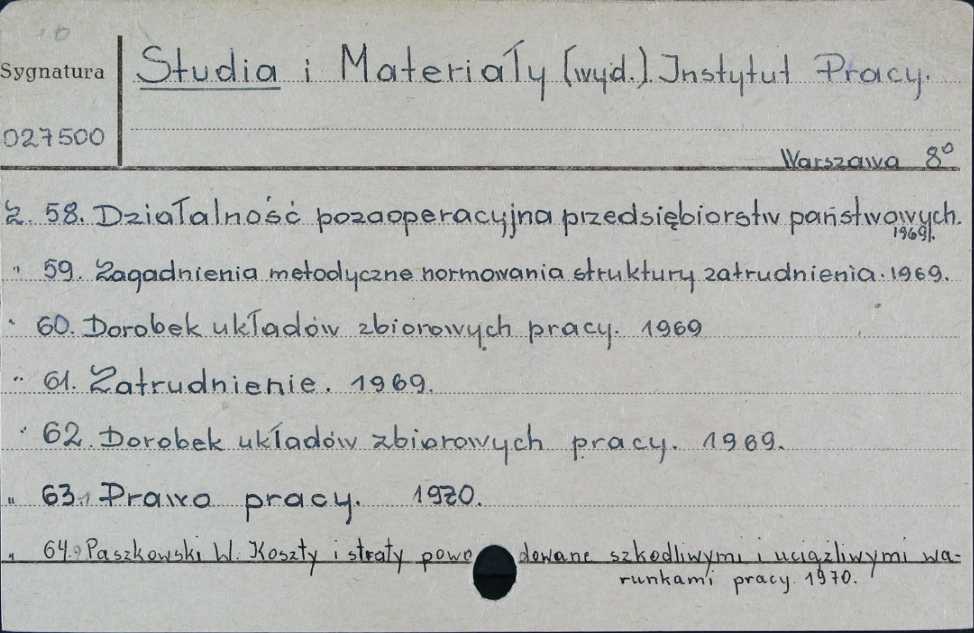 Sygnatura
027500
Studia i Materiały (wyd.). Instytut Pracy.
Warszawa 8°
Z. 58. Działalność pozaoperacyjna przedsiębiorstw państwowych.
1969r.
" 59. Zagadnienia metodyczne normowania struktury zatrudnienia. 1969.
" 60. Dorobek układów zbiorowych pracy. 1969
" 61. Zatrudnienie. 1969.
" 62. Dorobek układów zbiorowych pracy. 1969.
" 63. Prawo pracy. 1970.
" 64. Paszkowski W. Koszty i straty powo dowane szkodliwymi i uciążliwymi wa-
runkami pracy. 1970.